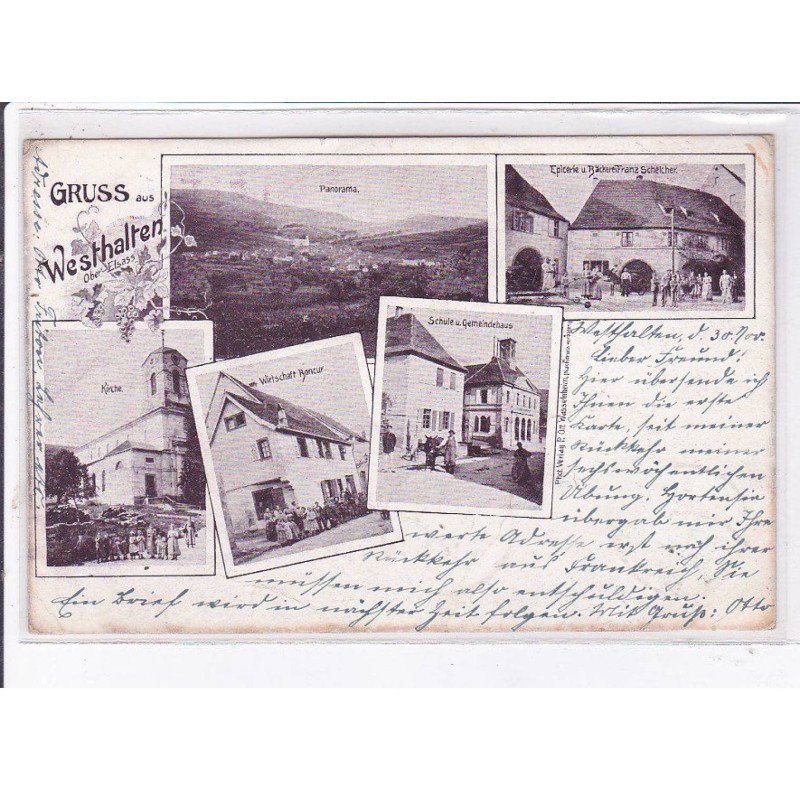 GRUSS aus
Westhalten
Ober-Elsass
Panorama.
Epicerie u. Bäckerei Franz Schelcher.
Kirche.
Wirtschaft Roncur
Schule u. Gemeindehaus
Phot. Verlag P. Ott, Wasselnheim,
Westhalten, d. 30. Nov.
Lieber Freund!
Hier übersende ich
Ihnen die erste
Karte, seit meiner
Rückkehr meiner
sechswöchentlichen
Übung. Hortensia
übergab mir Ihre
werte Adresse erst nach ihrer
Rückkehr aus Frankreich, Sie
müssen mich also entschuldigen.
Ein Brief wird in nächster Zeit folgen. Mit Gruß: Otto
Adresse: Otto